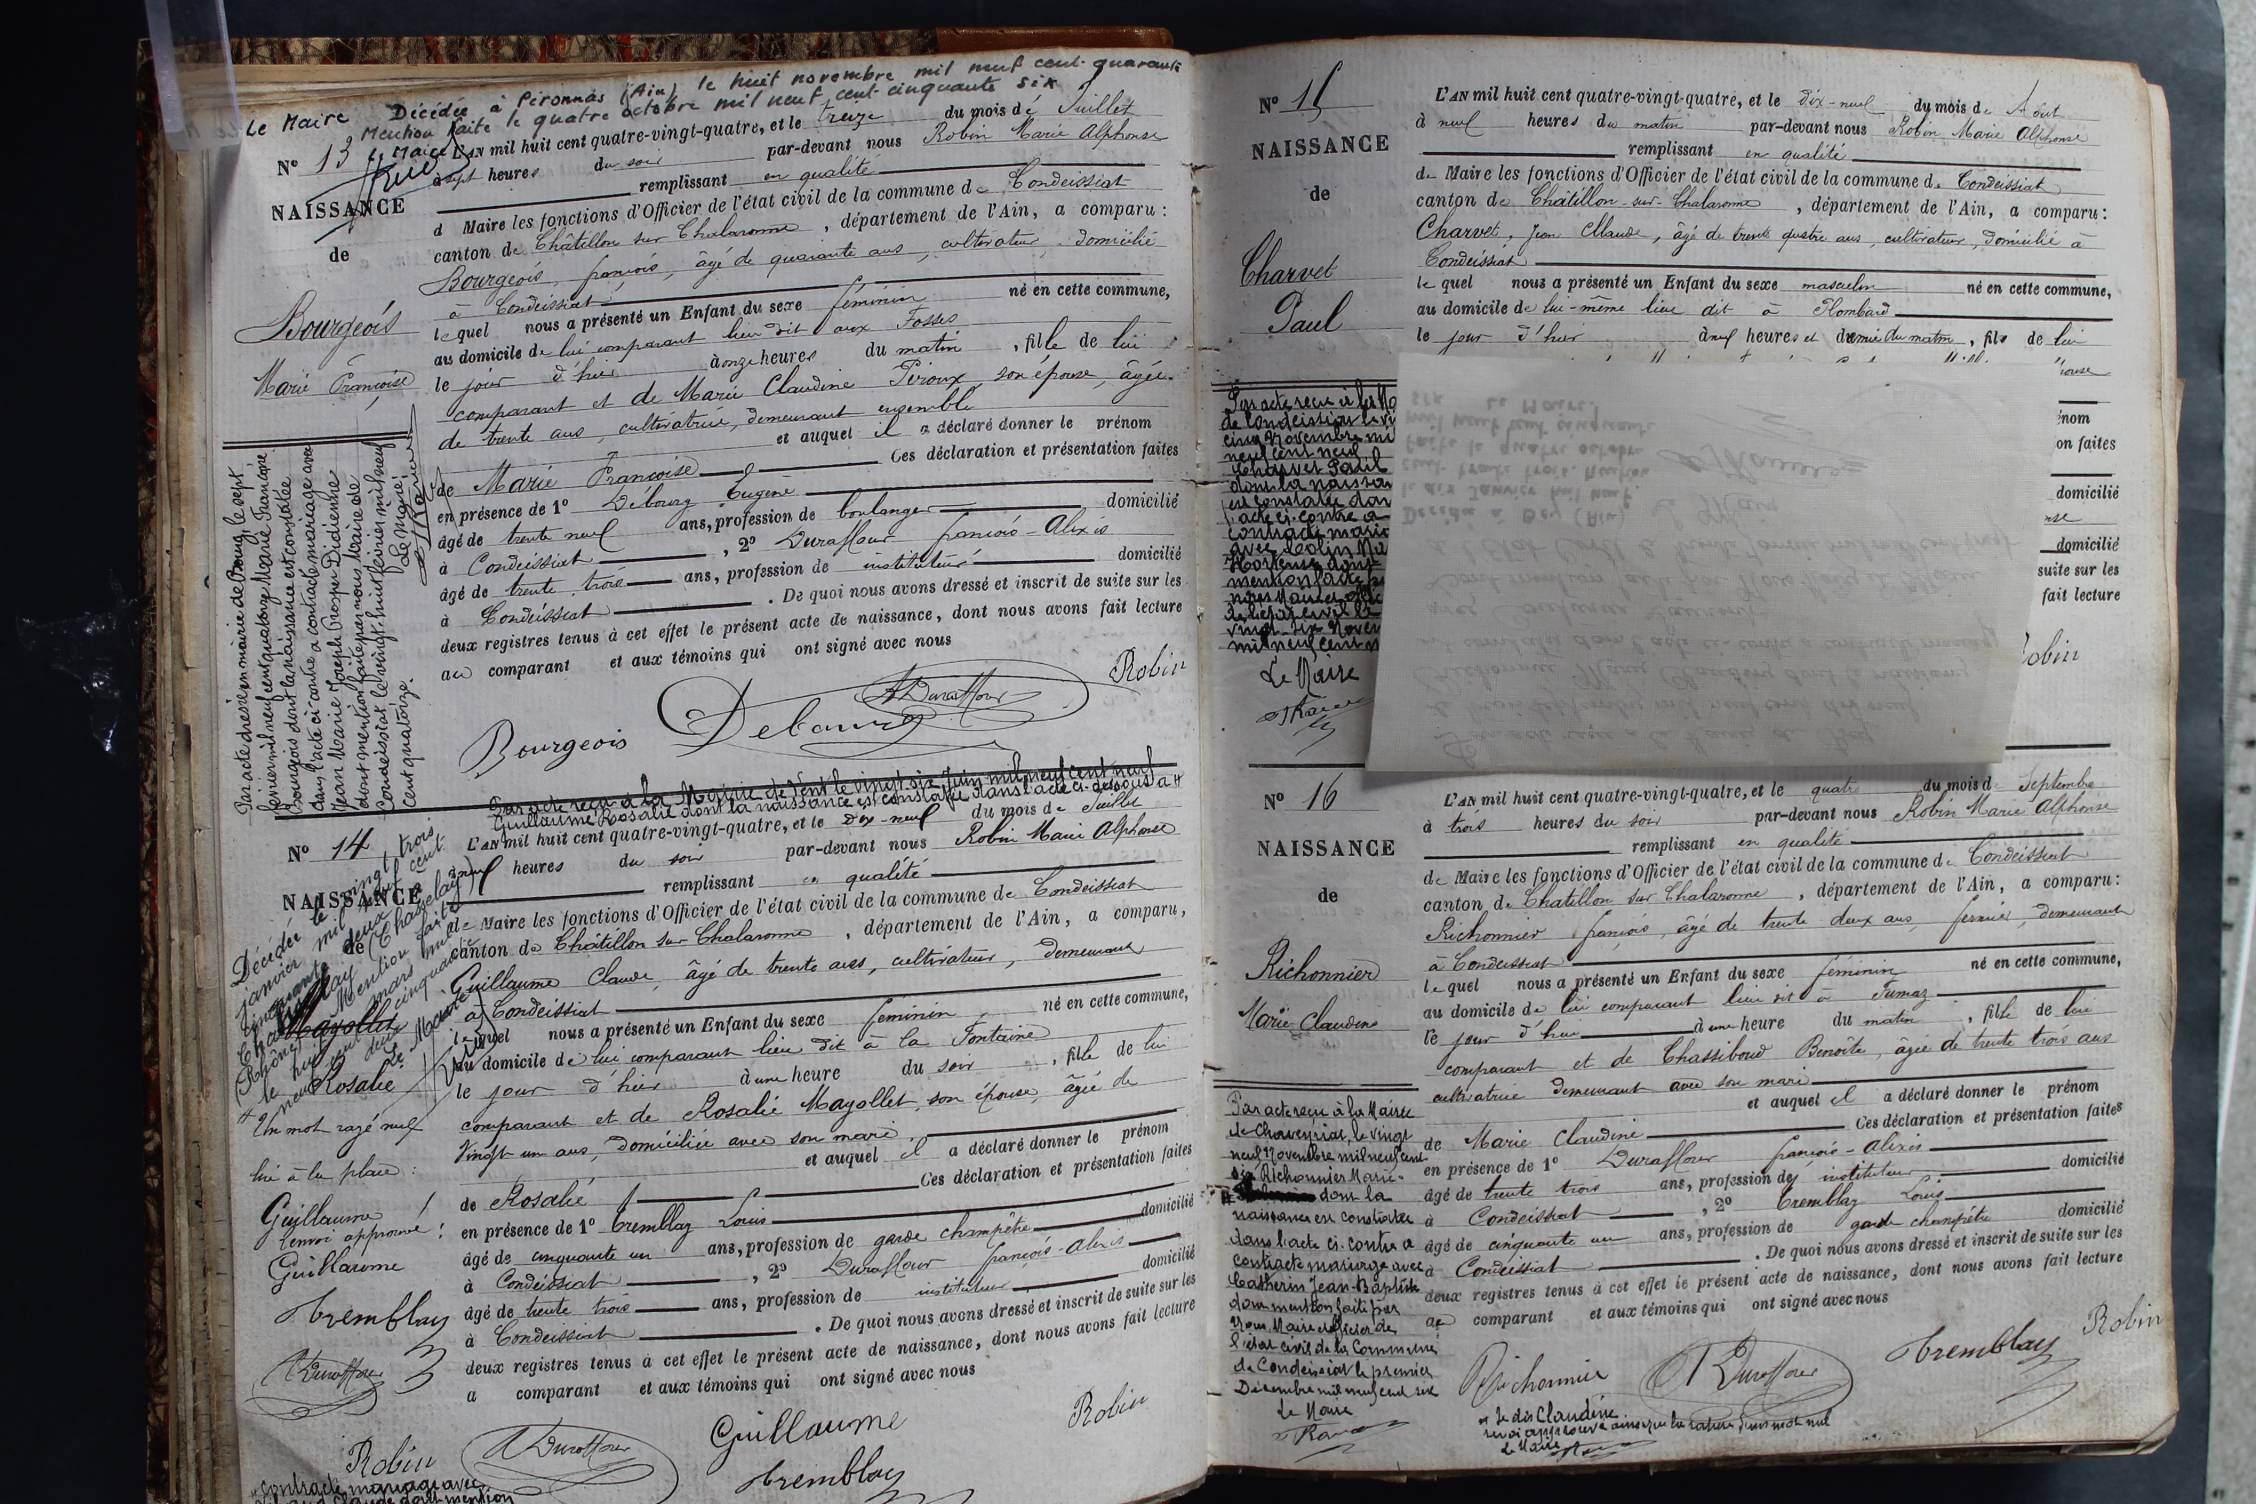 Le Maire Décédée à Péronnas (Ain) le huit novembre mil neuf cent quarante six
Mention faite le quatre octobre mil neuf cent cinquante
Le Maire
N° 13
NAISSANCE
de
Bourgeois
Marie Françoise
L'AN mil huit cent quatre-vingt-quatre, et le treize du mois de Juillet
à sept heures du soir par-devant nous Robin Marie Alphonse
remplissant en qualité
d Maire les fonctions d'Officier de l'état civil de la commune de Condeissiat
canton de Châtillon sur Chalaronne, département de l'Ain, a comparu :
Bourgeois, françois, âgé de quarante ans, cultivateur domicilié
à Condeissiat
lequel nous a présenté un Enfant du sexe féminin né en cette commune,
au domicile de lui comparant lieu dit aux Fosses
le jour d'hier à onze heures du matin, fille de lui
comparant et de Marie Claudine Péroux, son épouse, âgée
de trente ans, cultivatrice, demeurant ensemble
et auquel il a déclaré donner le prénom
de Marie Françoise Ces déclaration et présentation faites
en présence de 1° Débourg Eugène
âgé de trente neuf ans, profession de boulanger domicilié
à Condeissiat, 2° Duraffour françois-Alexis
âgé de trente trois ans, profession de instituteur domicilié
à Condeissiat. De quoi nous avons dressé et inscrit de suite sur les
deux registres tenus à cet effet le présent acte de naissance, dont nous avons fait lecture
au comparant et aux témoins qui ont signé avec nous
Bourgeois Debourg ADuraffour Robin
Par acte dressé en mairie de Bourg, le sept
février mil neuf cent quatorze, Marie Françoise
Bourgeois dont la naissance est constatée
dans l'acte ci-contre a contracté mariage avec
Jean Marie Joseph Prosper Didienne
dont mention faite par nous Maire de
Condeissiat le vingt-huit février mil neuf
cent quatorze.
Le Maire
Par acte reçu à la Mairie de Vent le vingt-six Juin mil neuf cent neuf
Guillaume Rosalie dont la naissance est constatée dans l'acte ci-dessous a #
N° 14
NAISSANCE
de
Mayollet
Rosalie
Décédée le vingt trois
janvier mil neuf cent
cinquante deux à
Chasselay (Chasselay)
(Rhône) Mention faite
le huit mars mil
neuf cent cinquante
deux Le Maire
+ Un mot rayé nul
lui à la place :
Guillaume
renvoi approuvé :
Guillaume
Tremblay
ADuraffour
L'AN mil huit cent quatre-vingt-quatre, et le dix-neuf du mois de Juillet
à neuf heures du soir par-devant nous Robin Marie Alphonse
remplissant en qualité
de Maire les fonctions d'Officier de l'état civil de la commune de Condeissiat
canton de Châtillon sur Chalaronne, département de l'Ain, a comparu,
Guillaume Claude, âgé de trente ans, cultivateur, demeurant
à Condeissiat
lequel nous a présenté un Enfant du sexe féminin né en cette commune,
au domicile de lui comparant lieu dit à la Fontaine
le jour d'hier à une heure du soir, fille de lui
comparant et de Rosalie Mayollet, son épouse, âgée de
Vingt un ans, domiciliée avec son mari
et auquel il a déclaré donner le prénom
de Rosalie Ces déclaration et présentation faites
en présence de 1° Tremblay Louis
âgé de cinquante un ans, profession de garde champêtre domicilié
à Condeissiat, 2° Duraffour françois-Alexis
âgé de trente trois ans, profession de instituteur domicilié
à Condeissiat. De quoi nous avons dressé et inscrit de suite sur les
deux registres tenus à cet effet le présent acte de naissance, dont nous avons fait lecture
a comparant et aux témoins qui ont signé avec nous
Robin ADuraffour Guillaume Tremblay Robin
# contracté mariage avec
N° 15
NAISSANCE
de
Charvet
Paul
L'AN mil huit cent quatre-vingt-quatre, et le dix-neuf du mois de Août
à neuf heures du matin par-devant nous Robin Marie Alphonse
remplissant en qualité
de Maire les fonctions d'Officier de l'état civil de la commune de Condeissiat
canton de Châtillon-sur-Chalaronne, département de l'Ain, a comparu :
Charvet, Jean Claude, âgé de trente quatre ans, cultivateur, domicilié à
Condeissiat
lequel nous a présenté un Enfant du sexe masculin né en cette commune,
au domicile de lui-même lieu dit à Plombard
le jour d'hier à neuf heures et demie du matin, fils de lui
épouse
énom
on faites
domicilié
domicilié
suite sur les
fait lecture
obin
Par acte reçu à la Ma
de Condeissiat le vi
cinq Novembre mi
neuf cent neuf
Charvet Paul
dont la naissan
est constatée dan
l'acte ci-contre a
contracté maria
avec Colin Ma
Hortense dont
mention faite p
nous Maire offic
de l'état civil le
vingt-six Novem
mil neuf cent n
Le Maire
N° 16
NAISSANCE
de
Richonnier
Marie Claudine
L'AN mil huit cent quatre-vingt-quatre, et le quatre du mois de Septembre
à trois heures du soir par-devant nous Robin Marie Alphonse
remplissant en qualité
de Maire les fonctions d'Officier de l'état civil de la commune de Condeissiat
canton de Chatillon sur Chalaronne, département de l'Ain, a comparu :
Richonnier françois, âgé de trente deux ans, fermier, demeurant
à Condeissiat
lequel nous a présenté un Enfant du sexe féminin né en cette commune,
au domicile de lui comparant lieu dit à Fumaz
le jour d'hier à une heure du matin, fille de lui
comparant et de Chassiboud Benoîte, âgée de trente trois ans
cultivatrice demeurant avec son mari
et auquel il a déclaré donner le prénom
de Marie Claudine Ces déclaration et présentation faites
en présence de 1° Duraffour françois-Alexis
âgé de trente trois ans, profession de instituteur domicilié
à Condeissiat, 2° Tremblay Louis
âgé de cinquante un ans, profession de garde champêtre domicilié
à Condeissiat. De quoi nous avons dressé et inscrit de suite sur les
deux registres tenus à cet effet le présent acte de naissance, dont nous avons fait lecture
au comparant et aux témoins qui ont signé avec nous
Richonnier ADuraffour Tremblay Robin
Par acte reçu à la Mairie
de Chaveyriat, le vingt
neuf Novembre mil neuf cent
six Richonnier Marie-
# dont la
naissance est constatée
dans l'acte ci-contre a
contracté mariage avec
Catherin Jean-Baptiste
dont mention faite par
nous Maire officier de
l'état civil de la Commune
de Condeissiat le premier
Décembre mil neuf cent six
Le Maire
# Je dis Claudine
renvoi approuvé ainsi que la rature d'un mot nul
Le Maire